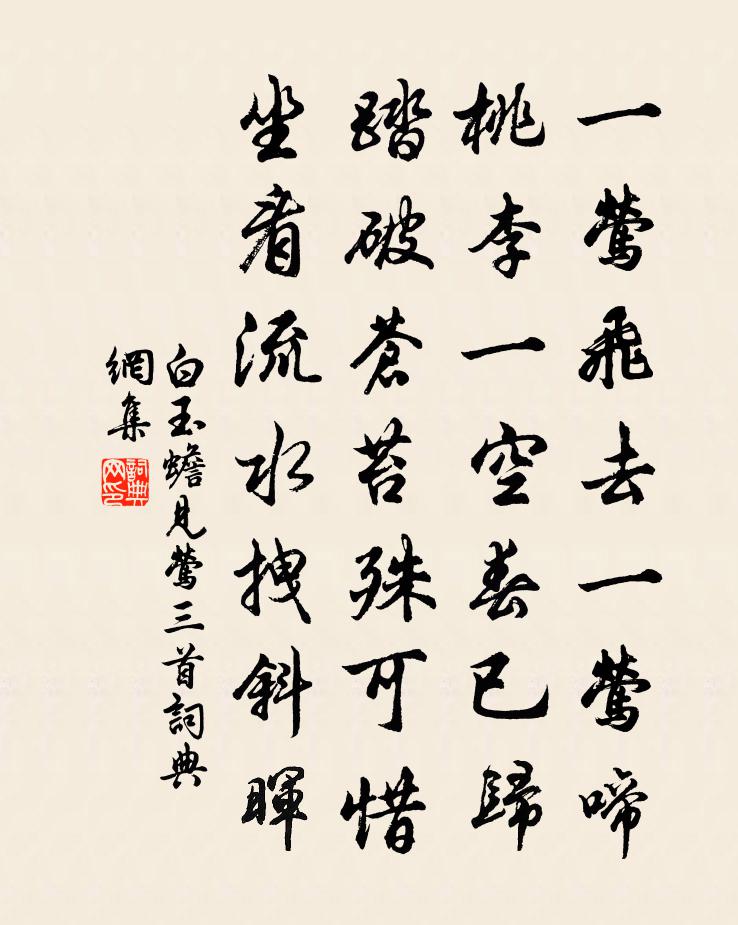 一鶯飛去一鶯啼
桃李一空春已歸
踏破蒼苔殊可惜
坐看流水拽斜暉
白玉蟾見鶯三首詞典
網集
詞典
网印